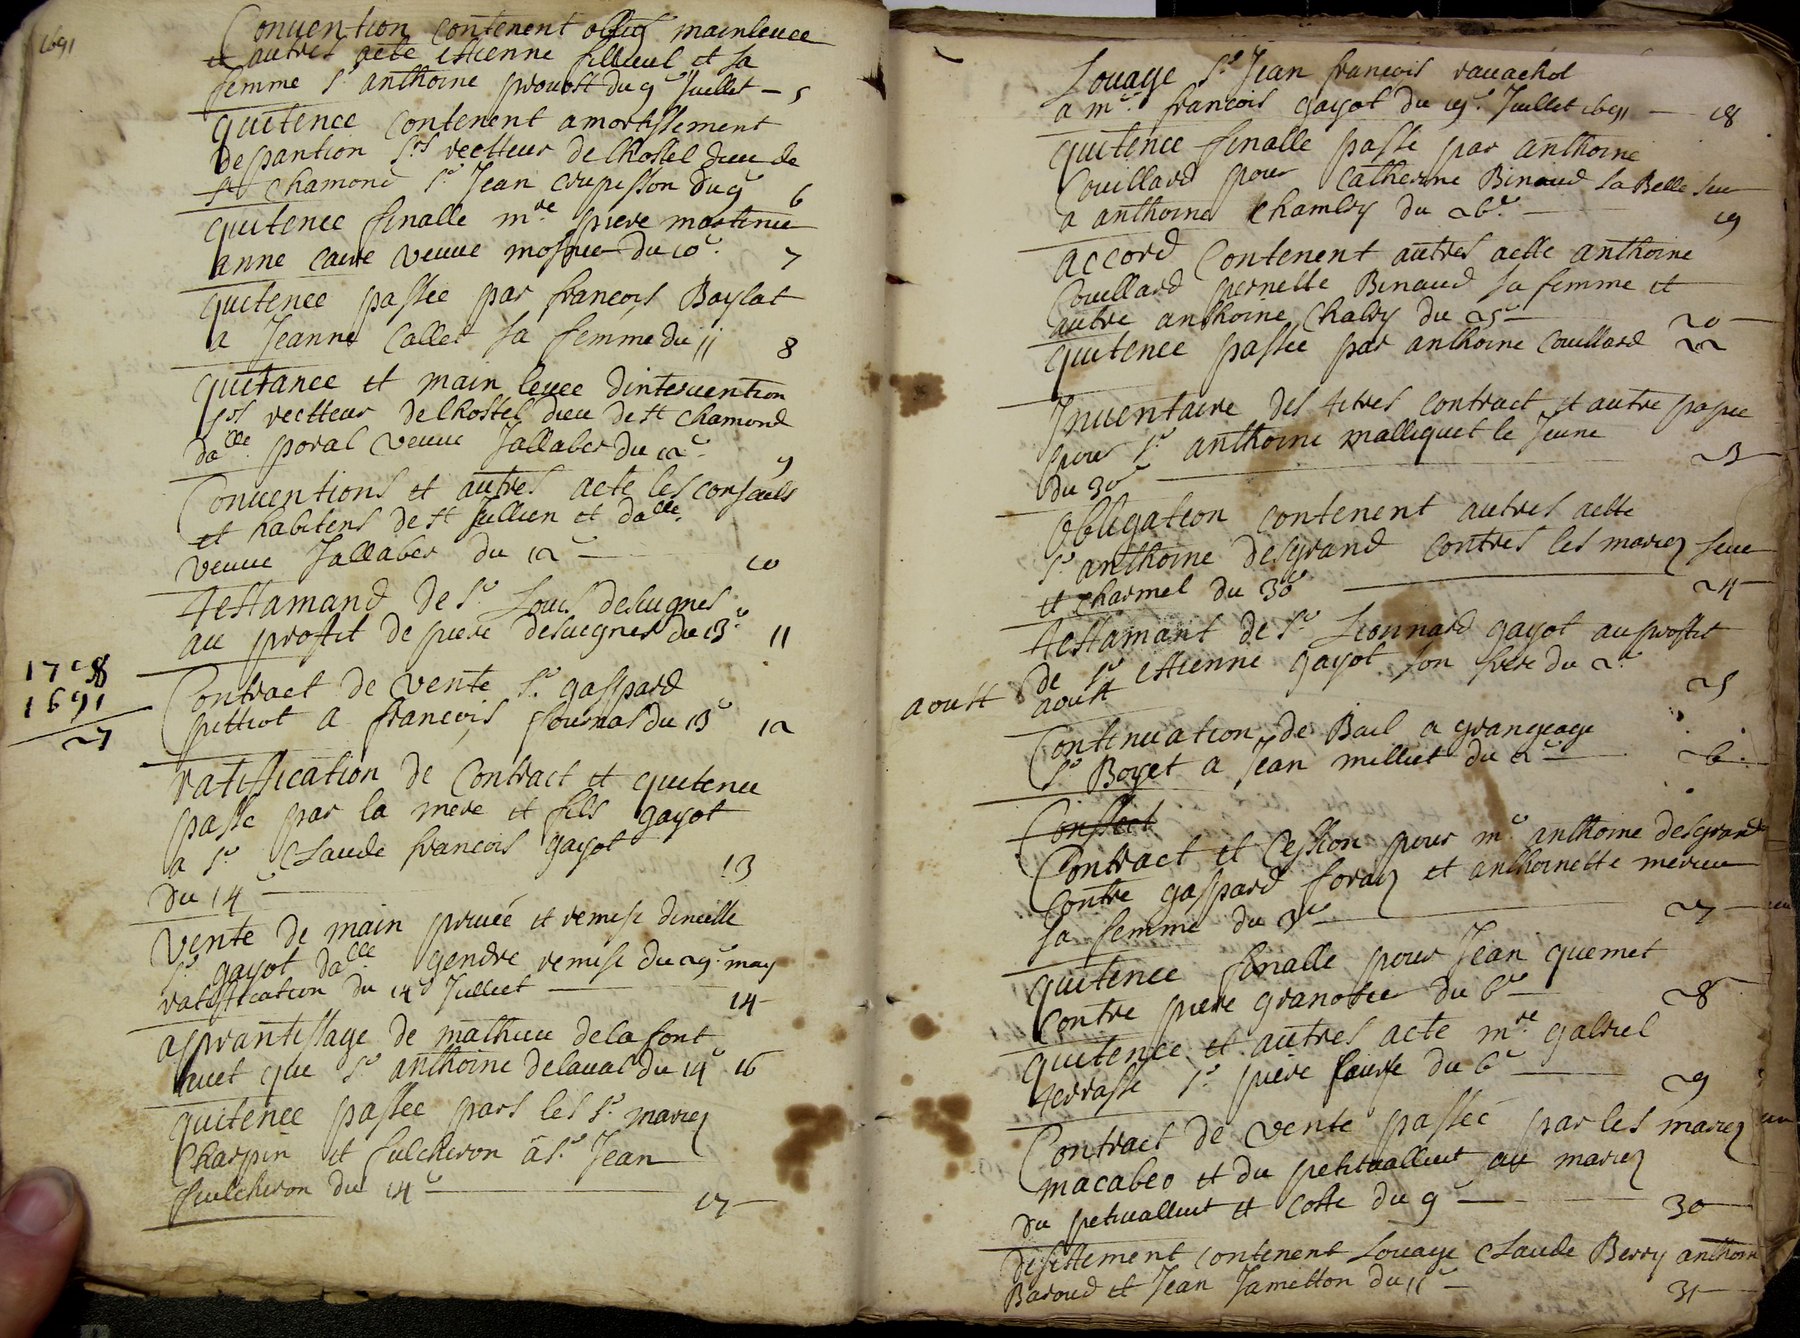 1691
Convention contenent oblig mainlevee
et autres acte estienne filleul et sa
femme sr anthoine provost du 9e Juillet - 5
quitence contenent amortissement
de pantion srs recteur de lhostel dieu de
st chamond sr Jean crupisson du 9e 6
quitence finalle mre piere martinie
anne caire veuve mosnier du 10e 7
quitence passee par francois Baylat
a Jeanne Callet sa femme du 11 8
quitance et main levee dintervention
srs recteur de lhostel dieu de st chamond
dalle poral veuve Jallaber du 12e 9
Conventions et autres acte les consculs
et habitens de st Jullien et dalle
veuve Jallaber du 12e 10
testamand de sr Louis desuignes
au proffit de piere desuignes du 13e 11
1718
1691
27
Contract de vente sr gaspard
pittiot a francois fournas du 13e 12
ratiffication de Contract et quitence
passe par la mere et fils gayot
a sr Claude francois gayot
du 14e 13
vente de main privée et remise
sr gayot dalle gendre remise du 29e may
ratiffication du 14e Juillet 14
aprantissage de mathieu de la font
avet que sr anthoine delaval du 14e 16
quitence passee pars les sr mariez
Charpin et fulchiron à sr Jean
fulchiron du 14e 17
Louage sr Jean francois ravachol
a mr francois gayot du 19e Juillet 1691 18
quitence finalle passe par anthoine
Couillard pour Catherine Binaud sa Belle seur
a anthoine Chambry du 26e 19
accord Contenent autres acte anthoine
Couillard pernette Binaud sa femme et
autre anthoine Chalry du 25e 20
quitence passee par anthoine Couillard 22
Inventaire des titres contract et autre papie
pour sr anthoine malliquet le Jeune
du 30e 23
obligation contenent autres acte
sr anthoine desgrand contres les mariez seve
et charmel du 30e 24
testamant de sr Leonnard gayot au proffit
de sr estienne gayot son frere du 2e
aoust aoust 25
Continuation de Bail a grangeage
sr Boyet a Jean milliet du 2e 26
Contract et Cession pour mr anthoine desgrand
contre gaspard foraz et anthoinette merieu
sa femme du 3e 27
quitence finalle pour Jean quemet
contre piere granotier du 6e 28
quitence et autres acte mre gabriel
terrasse sr piere faure du 6e 29
Contract de vente passee par les mariez
macabeo et du petitvalliut au mariez
du petitvalliut et Coste du 9e 30
desistement contenent Louage Claude Berry anthoin
Baroud et Jean Jametton du 11e 31